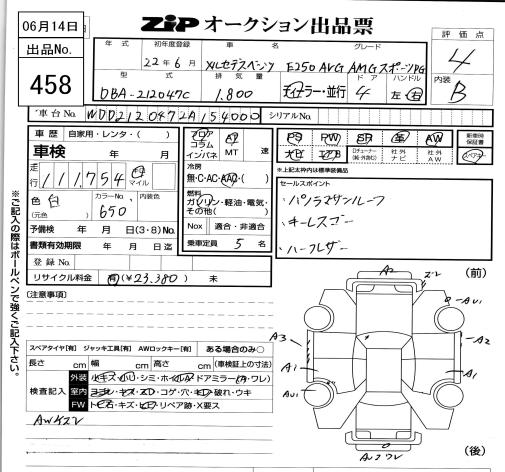 06月14日
出品No.
458
ZiP オークション出品票
評価点
4
内装
B
年式 初年度登録 車名 グレード
22年6月 メルセデスベンツ E250 AVG AMGスポーツPG
型式 排気量 ドア ハンドル
DBA-212047C 1.800 ディーラー・並行 4 左・右
車台No. WDD2120472A154000 シリアルNo.
車歴 自家用・レンタ・( )
車検 年 月
走行 111,754 km マイル
色 白 (元色) カラーNo. 650 内装色
予備検 年 月 日(3・8)No.
書類有効期限 年 月 日迄
登録No.
リサイクル料金 有(¥23.380) 未
フロア コラム インパネ AT MT 速
冷房
無・C・AC・AAC・( )
燃料
ガソリン・軽油・電気・その他( )
Nox 適合・非適合
乗車定員 5 名
PS PW SR 革 AW
ナビ エアB 社外ナビ 社外AW
新車時保証書
*上記太枠内は標準装備品
セールスポイント
・パノラマサンルーフ
・キーレスゴー
・ハーフレザー
※ご記入の際はボールペンで強くご記入下さい。
(注意事項)
スペアタイヤ[有] ジャッキ工具[有] AWロックキー[有] ある場合のみ○
長さ cm 幅 cm 高さ cm (車検証上の寸法)
検査記入
外装 小キズ・小凹・シミ・ホイルA・ドアミラー(A・ワレ)
室内 ヨゴレ・キズ・スレ・コゲ・穴・キレ・破れ・ウキ
FW トビ石・キズ・ヒビ・リペア跡・X要ス
AWキズ
(前)
A2
A3
A2
A1
A1
(後)